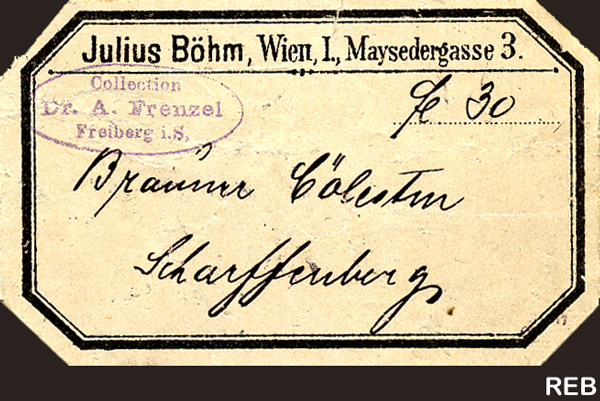 Julius Böhm, Wien, I., Maysedergasse 3.
Collection
Dr. A. Frenzel
Freiberg i.S,
fl 30
Brauner Cölestin
Scharffenberg
REB